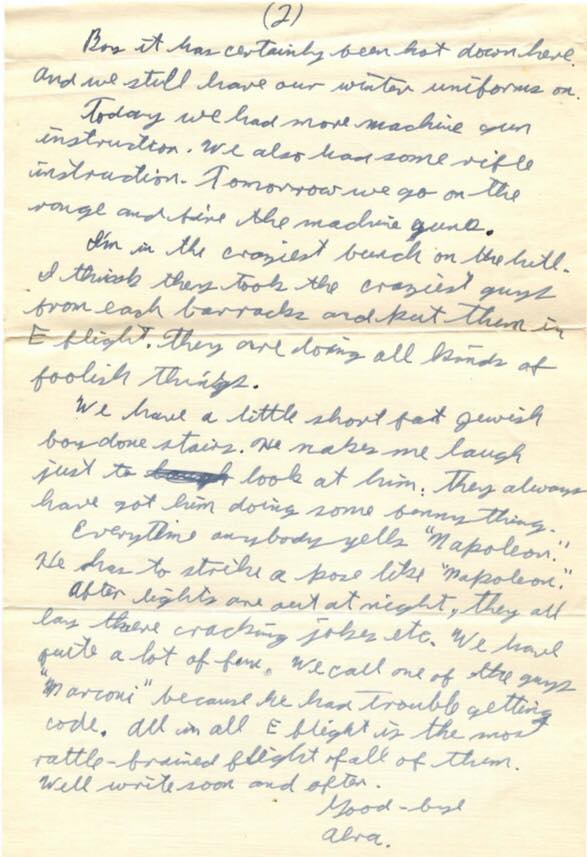 (2)
Boy it has certainly been hot down here.
And we still have our winter uniforms on.
Today we had more machine gun
instruction. We also had some rifle
instruction. Tomorrow we go on the
range and fire the machine guns.
I'm in the craziest bunch on the hill.
I think they took the craziest guys
from each barracks and put them in
E flight. They are doing all kinds of
foolish things.
We have a little short fat Jewish
boy done stairs. He makes me laugh
just to look at him. They always
have got him doing some funny thing.
Everytime anybody yells "Napoleon."
He has to strike a pose like "Napoleon."
After lights are out at night, they all
lay there cracking jokes etc. We have
quite a lot of fun. We call one of the guys
"Marconi" because he had trouble getting
code. All in all E flight is the most
rattle-brained flight of all of them.
Well write soon and often.
Good-bye
Alva.